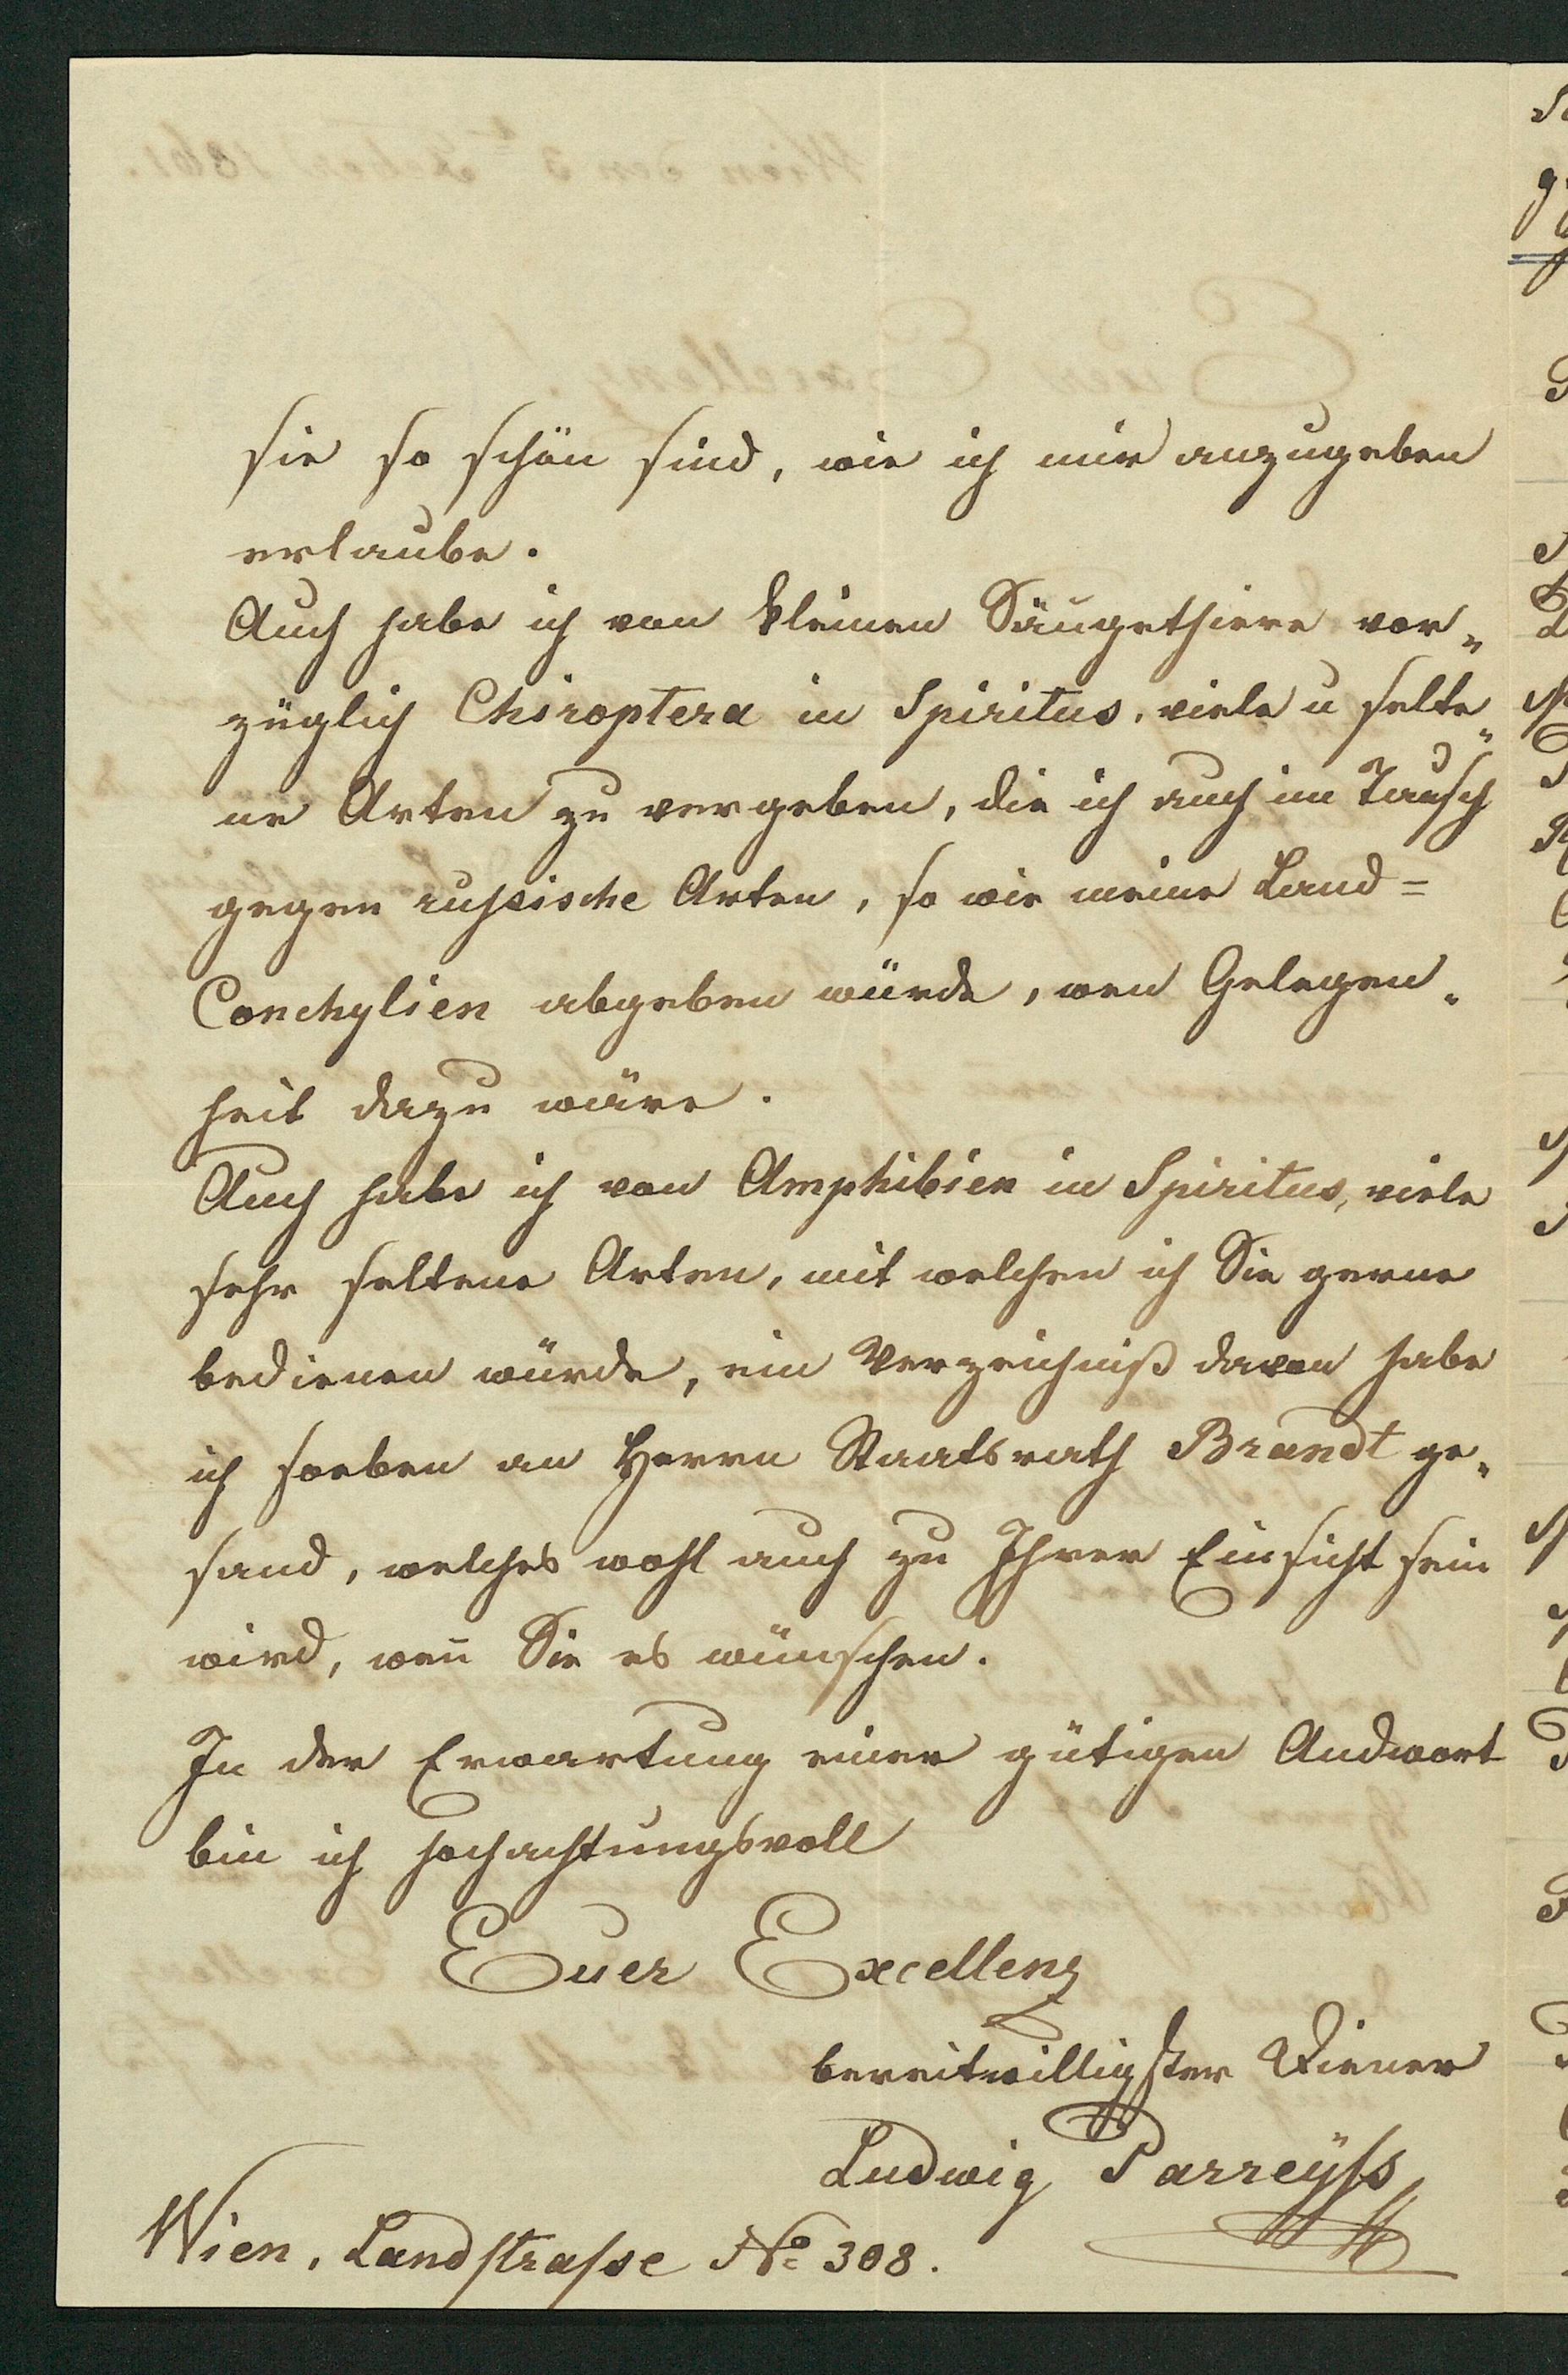 sie so schön sind, wie ich mir anzugeben
erlaube.
Auch habe ich von kleinen Säugethiere vor„
züglich Chiroptera in Spiritus, viele u selte„
ne Arten zu vergeben, die ich auch im Tausch
gegen russische Arten, so wie meine Land=
Conchylien abgeben würde, wen Gelegen„
heit dazu wäre.
Auch habe ich von Amphibien in Spiritus, viele
sehr seltene Arten, mit welchen ich Sie gerne
bedienen würde, ein Verzeichniß davon habe
ich soeben an Herrn Staatsrath Brandt ge„
sand, welches wohl auch zu Ihrer Einsicht sein
wird, wen̄ Sie es wünschen.
In der Erwartung einer gütigen Andwort
bin ich hochachtungsvoll
Euer Excellenz
bereitwilligster Diener
Ludwig Parreÿss
Wien, Landstrasse No 308.